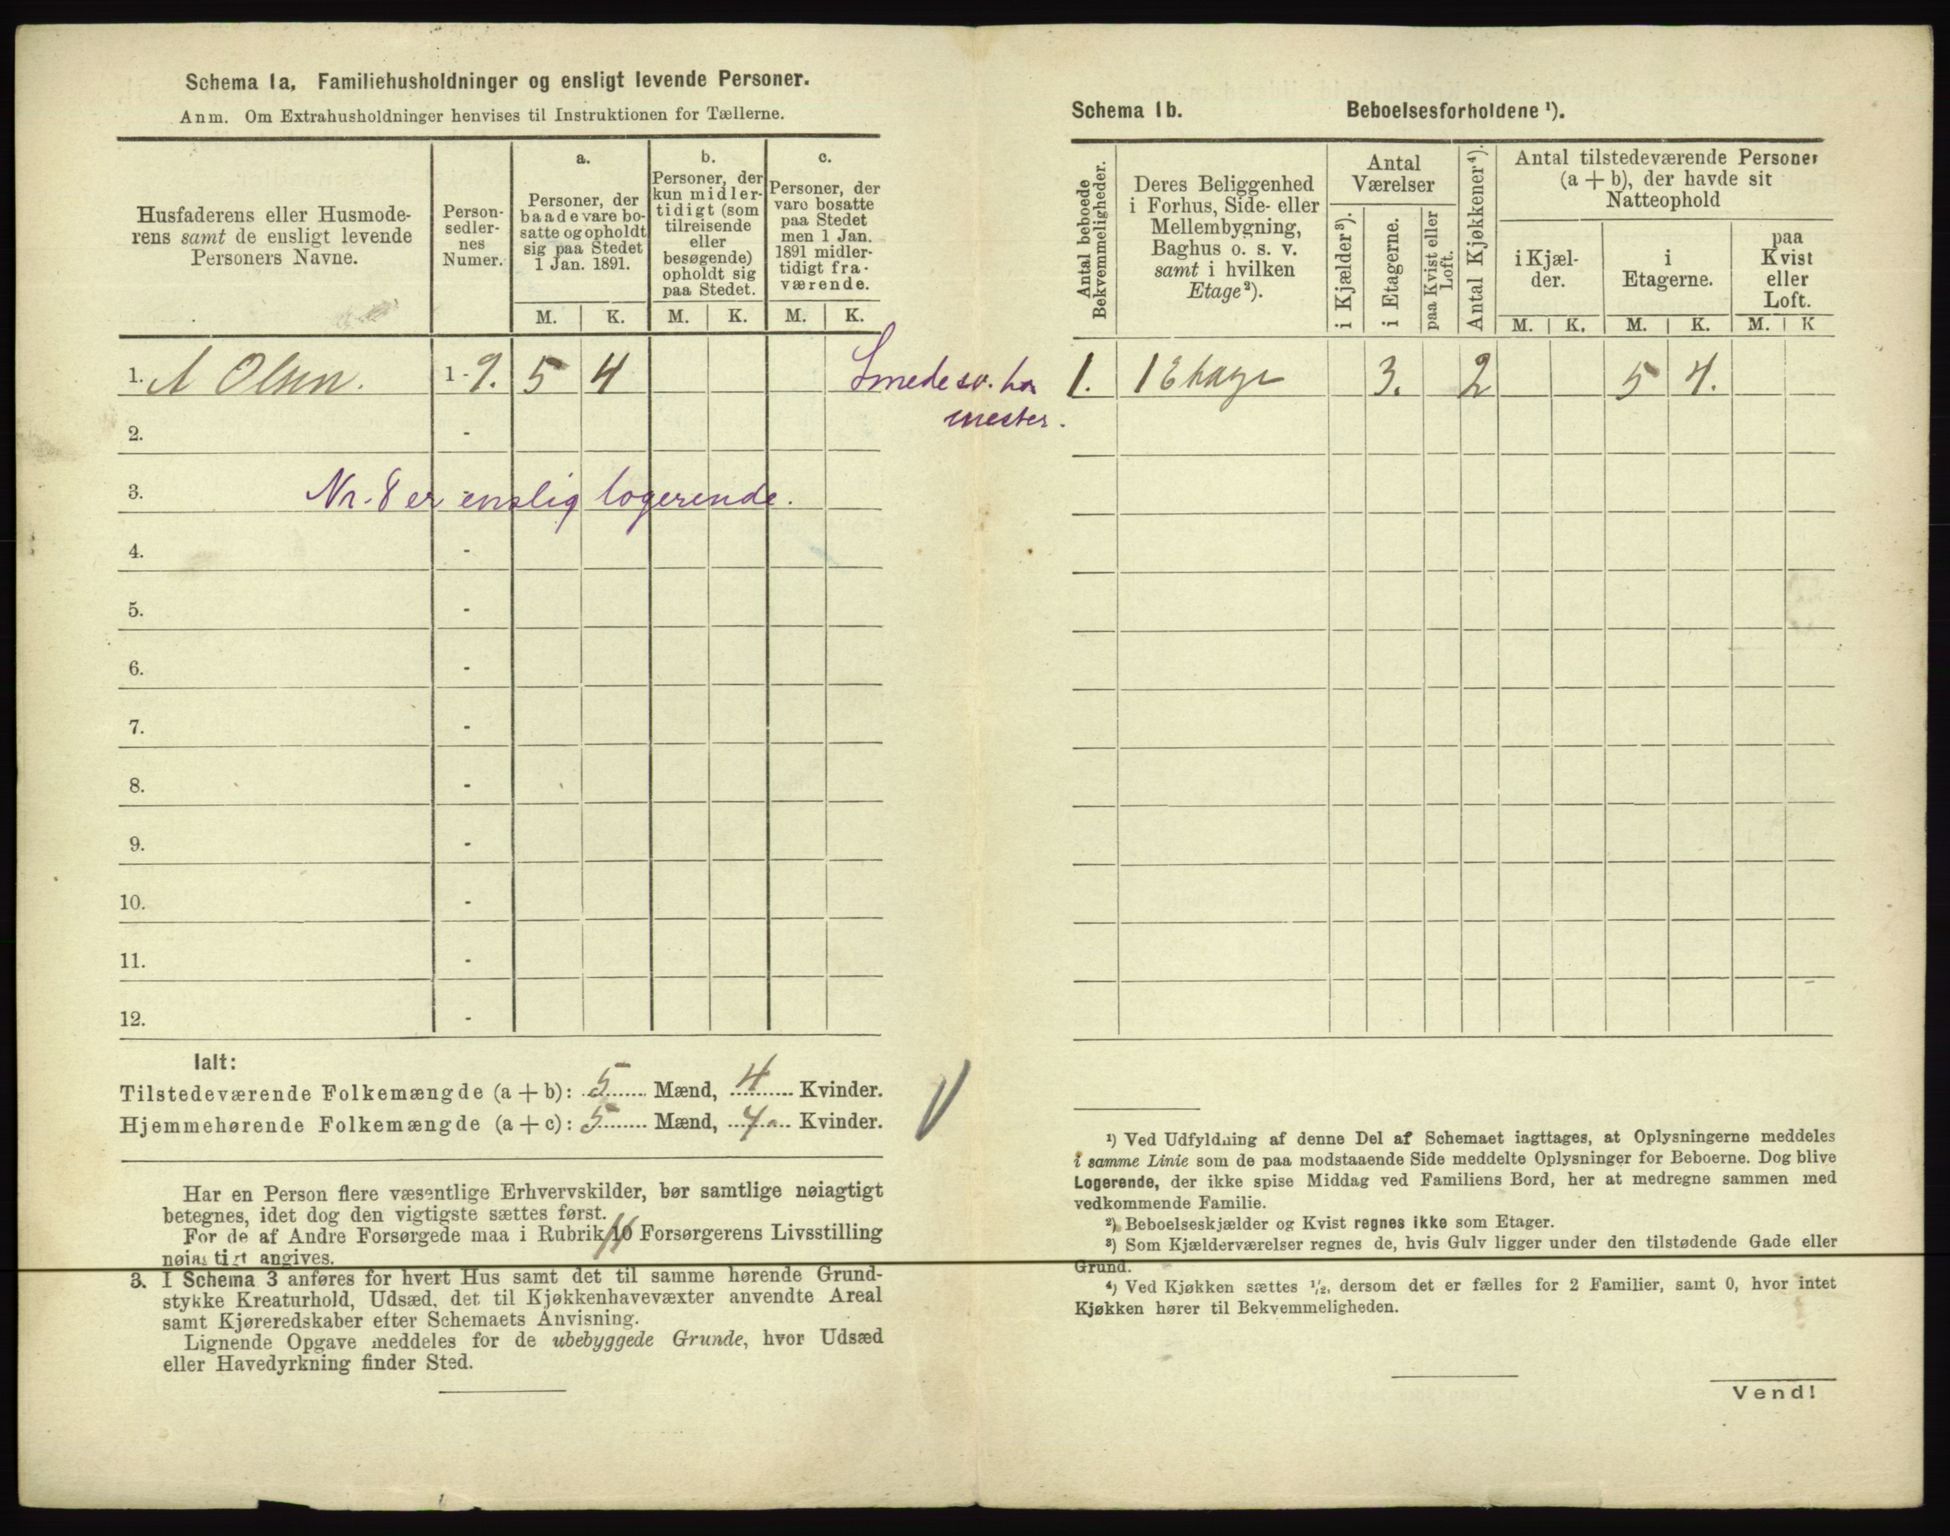 Schema 1a, Familiehusholdninger og ensligt levende Personer.
Anm. Om Extrahusholdninger henvises til Instruktionen for Tællerne.
Husfaderens eller Husmode-
rens samt de ensligt levende
Personers Navne.
Person-
sedler-
nes
Numer.
a.
Personer, der
baade vare bo-
satte og opholdt
sig paa Stedet
1 Jan. 1891.
b.
Personer, der
kun midler-
tidigt (som
tilreisende
eller
besøgende)
opholdt sig
paa Stedet.
c.
Personer, der
vare bosatte
paa Stedet
men 1 Jan.
1891 midler-
tidigt fra-
værende.
M. K. M. K. M. K.
1. A Olsen. 1-9. 5 4
2. -
3. Nr. 8 er enslig logerende.
4. -
5. -
6. -
7. -
8. -
9. -
10. -
11. -
12. -
Ialt:
Tilstedeværende Folkemængde (a + b): 5 Mænd, 4 Kvinder.
Hjemmehørende Folkemængde (a + c): 5 Mænd, 4 Kvinder.
Har en Person flere væsentlige Erhvervskilder, bør samtlige nøiagtigt
betegnes, idet dog den vigtigste sættes først.
For de af Andre Forsørgede maa i Rubrik 10 11 Forsørgerens Livsstilling
nøiagtigt angives.
3. I Schema 3 anføres for hvert Hus samt det til samme hørende Grund-
stykke Kreaturhold, Udsæd, det til Kjøkkenhavevæxter anvendte Areal
samt Kjøreredskaber efter Schemaets Anvisning.
Lignende Opgave meddeles for de ubebyggede Grunde, hvor Udsæd
eller Havedyrkning finder Sted.
Smedesv.
mester.
Schema 1b. Beboelsesforholdene ¹).
Antal beboede
Bekvemmeligheder.
Deres Beliggenhed
i Forhus, Side- eller
Mellembygning,
Baghus o. s. v.
samt i hvilken
Etage²).
Antal
Værelser
i Kjælder³).
i Etagerne.
paa Kvist eller
Loft.
Antal Kjøkkener⁴).
Antal tilstedeværende Personer
(a + b), der havde sit
Natteophold
i Kjæl-
der.
i
Etagerne.
paa
Kvist
eller
Loft.
M. K. M. K. M. K
1. 1 Etage 3. 2 5 4.
¹) Ved Udfyldning af denne Del af Schemaet iagttages, at Oplysningerne meddeles
i samme Linie som de paa modstaaende Side meddelte Oplysninger for Beboerne. Dog blive
Logerende, der ikke spise Middag ved Familiens Bord, her at medregne sammen med
vedkommende Familie.
²) Beboelseskjælder og Kvist regnes ikke som Etager.
³) Som Kjælderværelser regnes de, hvis Gulv ligger under den tilstødende Gade eller
Grund.
⁴) Ved Kjøkken sættes ½, dersom det er fælles for 2 Familier, samt 0, hvor intet
Kjøkken hører til Bekvemmeligheden.
Vend!